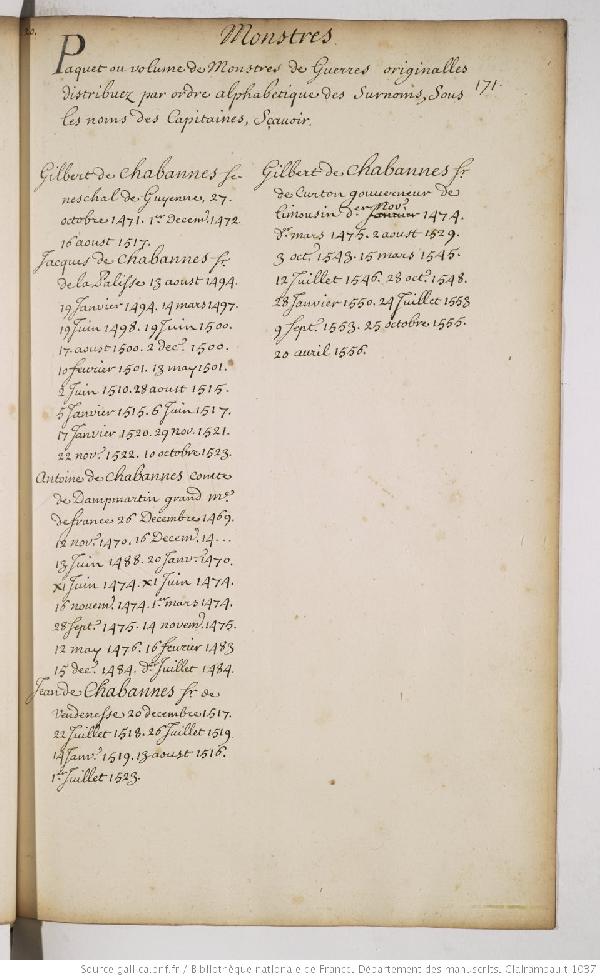 20.
Monstres.
Paquet ou volume de Monstres de Guerres originalles
distribuez par ordre alphabetique des Surnoms, Sous
les noms des Capitaines, Sçavoir.
171.
Gilbert de Chabannes se-
neschal de Guyenne, 27.
octobre 1471. 1er Decemb. 1472
16 aoust 1517.
Jacques de Chabannes sr.
de la Palisse 13 aoust 1494.
19 Janvier 1494. 14 mars 1497.
19 Juin 1498. 19 Juin 1500.
17. aoust 1500. 2 dec. 1500.
10 fevrier 1501. 13 may 1501.
2 Juin 1510. 28 aoust 1515.
5 Janvier 1515. 6 Juin 1517.
17 Janvier 1520. 29 nov. 1521.
22 nov. 1522. 10 octobre 1523.
Antoine de Chabannes comte
de Dampmartin grand me.
de france 26 Decembre 1469.
12 nov. 1470. 16 Decemb. 14...
13 Juin 1488. 20 Janv. 1470.
XI Juin 1474. XI Juin 1474.
16 novemb. 1474. 1er mars 1474.
28 Sept. 1475. 14 novemb. 1475.
12 may 1476. 16 fevrier 1483
15 dec. 1484. der Juillet 1484.
Jean de Chabannes sr. de
Vandenesse 20 decembre 1517.
22 Juillet 1518. 26 Juillet 1519.
14 Janv. 1519. 13 aoust 1516.
1er Juillet 1523.
Gilbert de Chabannes sr
de Curton gouverneur de
Limousin der Nov. Janvier 1474.
der mars 1475. 2 aoust 1529.
3 oct. 1543. 15 mars 1545.
12 Juillet 1546. 28 oct. 1548.
28 Janvier 1550. 24 Juillet 1553
9 Sept. 1553. 25 octobre 1555.
20 avril 1556.
Source gallica.bnf.fr / Bibliothèque nationale de France. Département des manuscrits. Clairambault 1037